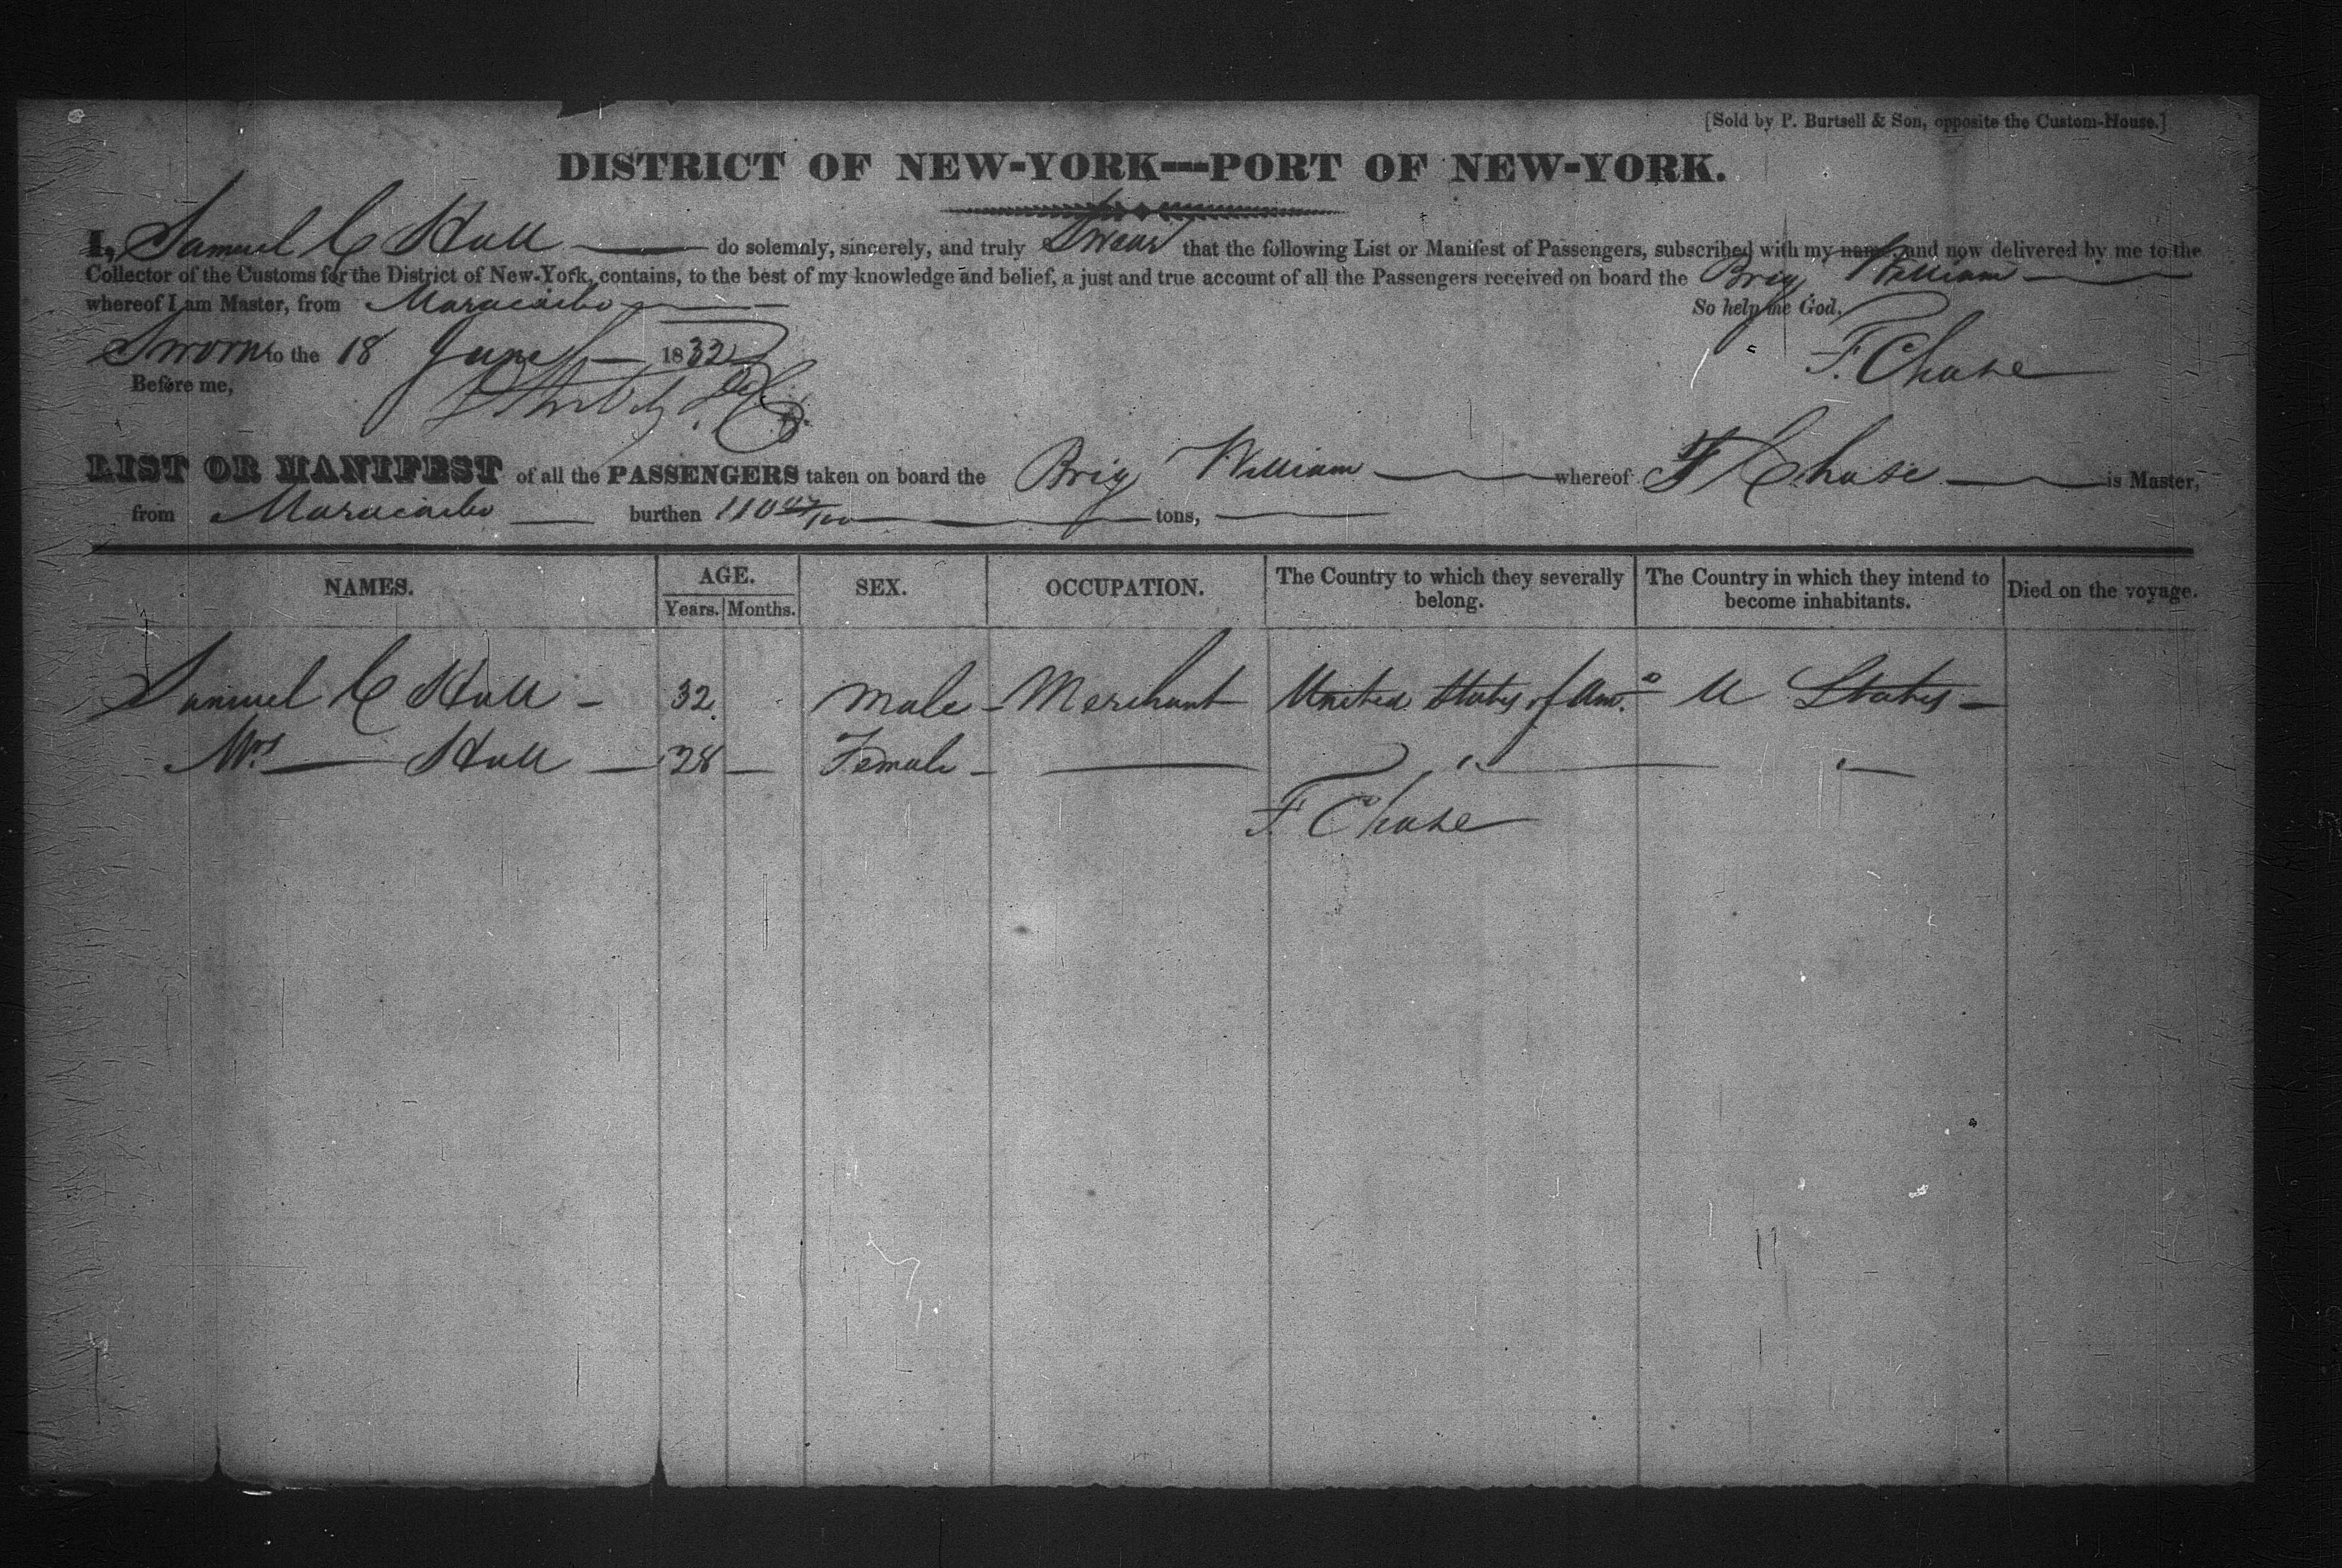 [Sold by P. Burtsell & Son, opposite the Custom-House.]
DISTRICT OF NEW-YORK---PORT OF NEW-YORK.
I, Samuel C Hall do solemnly, sincerely, and truly Swear that the following List or Manifest of Passengers, subscribed with my name, and now delivered by me to the
Collector of the Customs for the District of New-York, contains, to the best of my knowledge and belief, a just and true account of all the Passengers received on board the Brig William
whereof I am Master, from Maracaibo So help me God.
Sworn to the 18 June 1832 F. Chase
Before me,
LIST OR MANIFEST of all the PASSENGERS taken on board the Brig William whereof F Chase is Master,
from Maracaibo burthen 110 tons,
NAMES. AGE. Years. Months. SEX. OCCUPATION. The Country to which they severally belong. The Country in which they intend to become inhabitants. Died on the voyage.
Samuel C Hall - 32 Male - Merchant United States of Am.a U States -
Mrs — Hall — 28 — Female - — " "
F. Chase